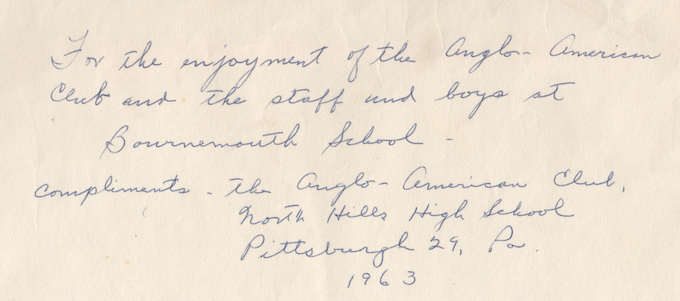 For the enjoyment of the Anglo-American
Club and the staff and boys at
Bournemouth School -
Compliments - the Anglo-American Club,
North Hills High School
Pittsburgh 29, Pa.
1963